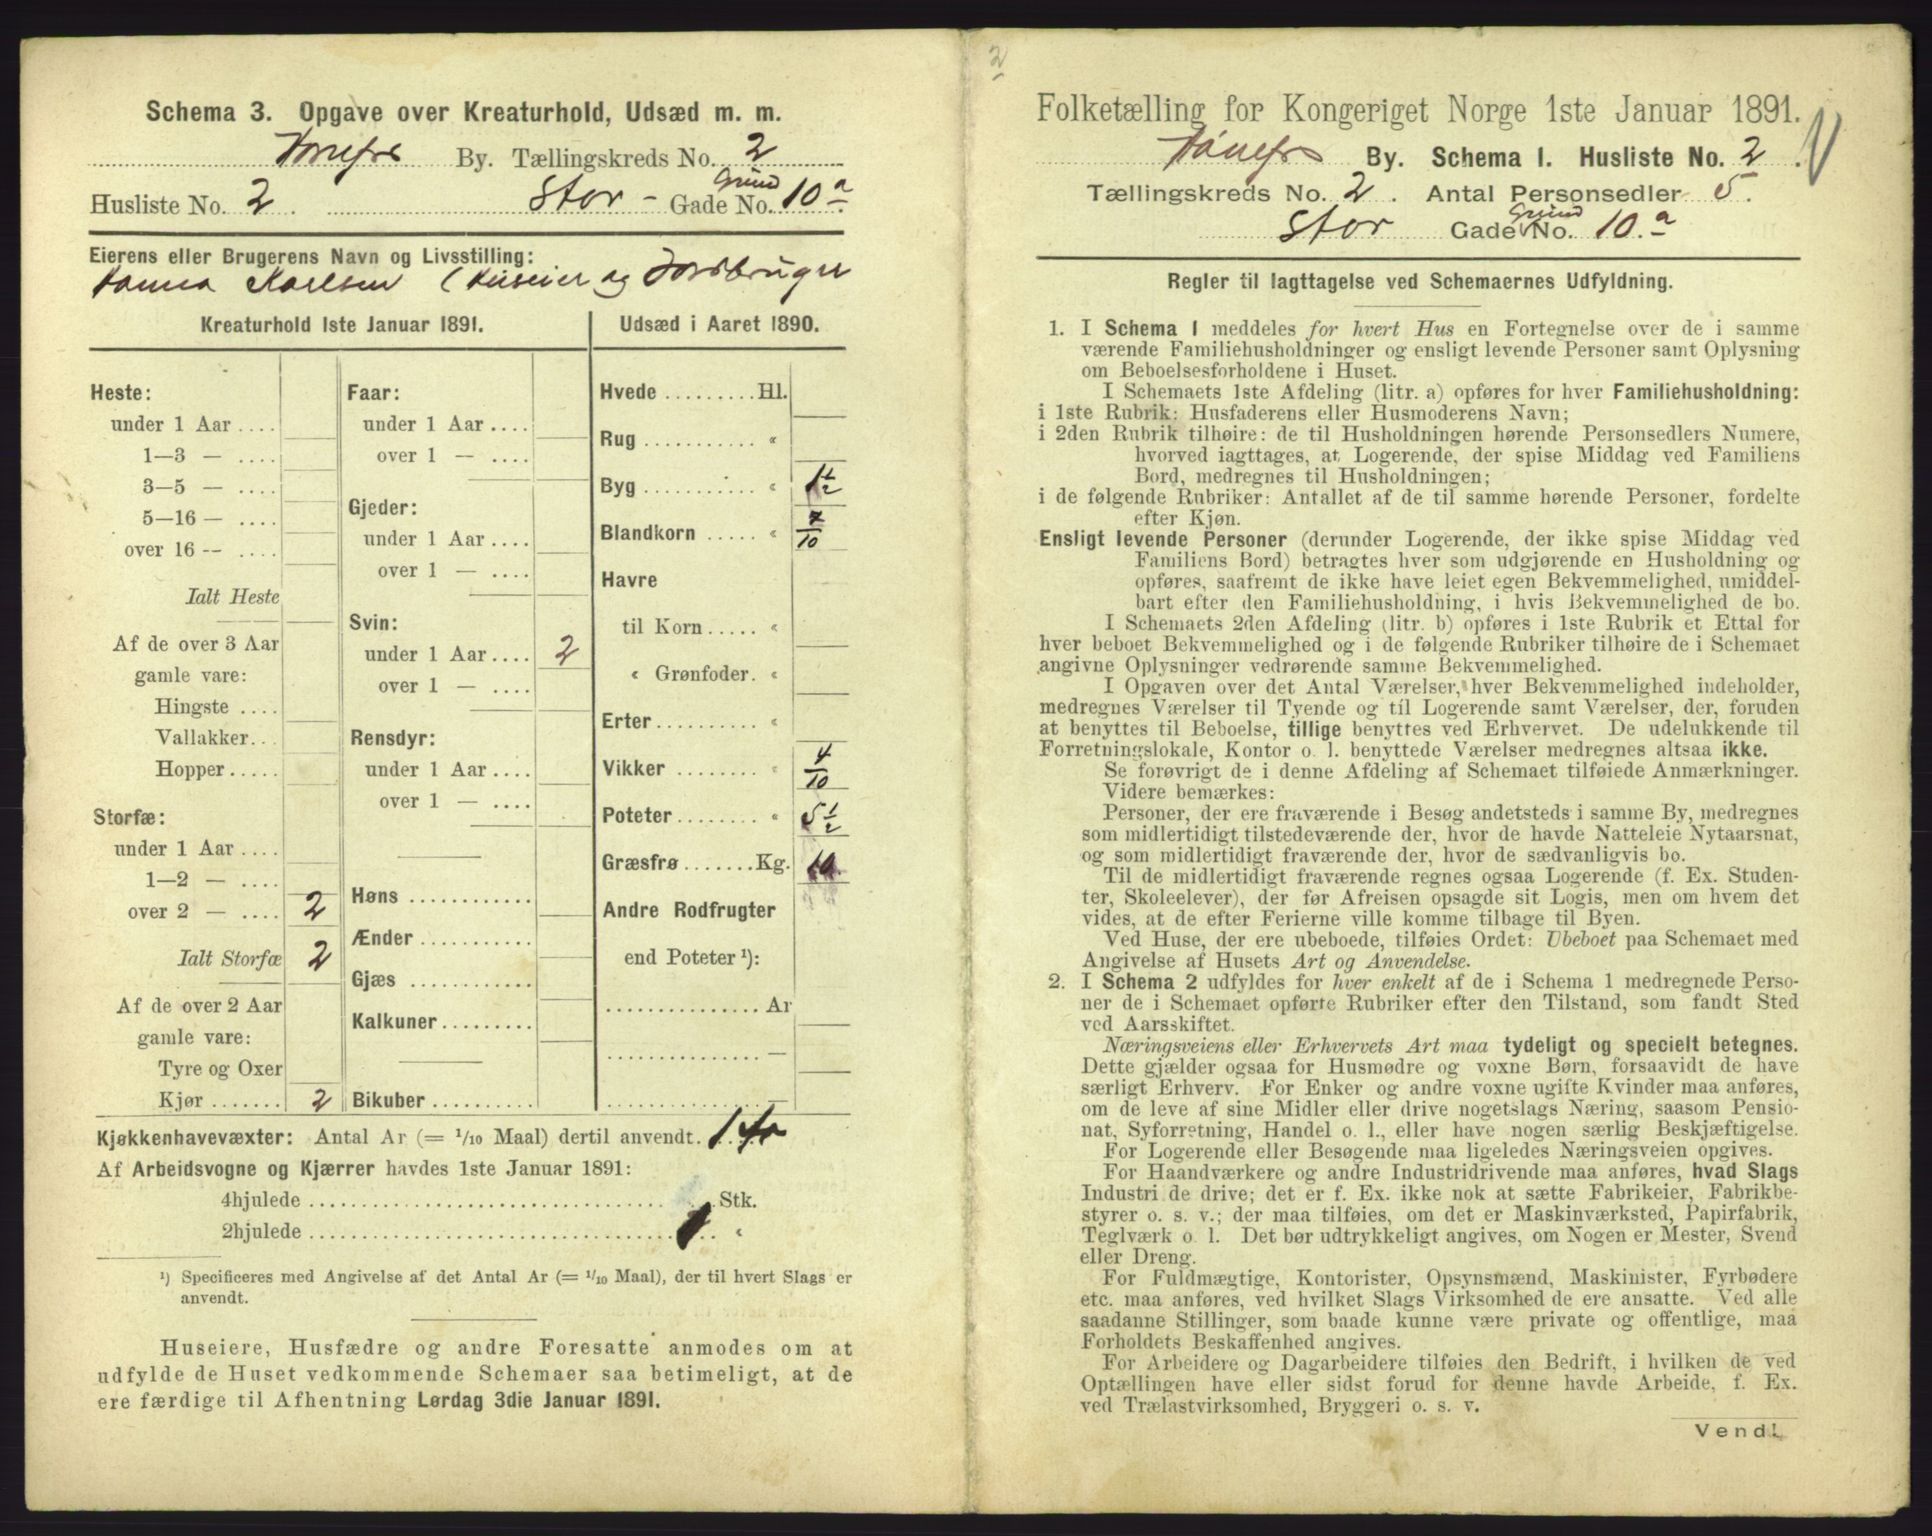 Schema 3. Opgave over Kreaturhold, Udsæd m. m.
Hønefos By. Tællingskreds No. 2
Husliste No. 2. Stor- Gade Grund No. 10 a
Eierens eller Brugerens Navn og Livsstilling:
Hanna Karlsen (Huseier og Jordbruger
Kreaturhold 1ste Januar 1891.
Heste:
under 1 Aar ....
1—3 — ....
3—5 — ....
5—16 — ....
over 16 — ....
Ialt Heste
Af de over 3 Aar
gamle vare:
Hingste ....
Vallakker...
Hopper.....
Storfæ:
under 1 Aar ....
1—2 — ....
over 2 — .... 2
Ialt Storfæ 2
Af de over 2 Aar
gamle vare:
Tyre og Oxer
Kjør ....... 2
Faar:
under 1 Aar ....
over 1 — ....
Gjeder:
under 1 Aar ....
over 1 — ....
Svin:
under 1 Aar .... 2
over 1 — ....
Rensdyr:
under 1 Aar ....
over 1 — ....
Høns ............
Ænder ...........
Gjæs ............
Kalkuner .........
Bikuber ..........
Udsæd i Aaret 1890.
Hvede ......... Hl.
Rug ........... «
Byg ........... « 1 1/2
Blandkorn ..... « 7/10
Havre
til Korn ..... «
« Grønfoder. «
Erter .......... «
Vikker ........ « 4/10
Poteter ........ « 5 1/2
Græsfrø ....... Kg. 10
Andre Rodfrugter
end Poteter ¹):
............... Ar
............... —
............... —
Kjøkkenhavevæxter: Antal Ar (= 1/10 Maal) dertil anvendt. 1 Ar
Af Arbeidsvogne og Kjærrer havdes 1ste Januar 1891:
4hjulede ........ Stk.
2hjulede ........ 1 «
¹) Specificeres med Angivelse af det Antal Ar (= 1/10 Maal), der til hvert Slags er
anvendt.
Huseiere, Husfædre og andre Foresatte anmodes om at
udfylde de Huset vedkommende Schemaer saa betimeligt, at de
ere færdige til Afhentning Lørdag 3die Januar 1891.
2
Folketælling for Kongeriget Norge 1ste Januar 1891.
Hønefos By. Schema I. Husliste No. 2.
Tællingskreds No. 2. Antal Personsedler 5.
Stor Gade Grund No. 10. a
Regler til Iagttagelse ved Schemaernes Udfyldning.
1. I Schema I meddeles for hvert Hus en Fortegnelse over de i samme
værende Familiehusholdninger og ensligt levende Personer samt Oplysning
om Beboelsesforholdene i Huset.
I Schemaets 1ste Afdeling (litr. a) opføres for hver Familiehusholdning:
i 1ste Rubrik: Husfaderens eller Husmoderens Navn;
i 2den Rubrik tilhøire: de til Husholdningen hørende Personsedlers Numere,
hvorved iagttages, at Logerende, der spise Middag ved Familiens
Bord, medregnes til Husholdningen;
i de følgende Rubriker: Antallet af de til samme hørende Personer, fordelte
efter Kjøn.
Ensligt levende Personer (derunder Logerende, der ikke spise Middag ved
Familiens Bord) betragtes hver som udgjørende en Husholdning og
opføres, saafremt de ikke have leiet egen Bekvemmelighed, umiddel-
bart efter den Familiehusholdning, i hvis Bekvemmelighed de bo.
I Schemaets 2den Afdeling (litr. b) opføres i 1ste Rubrik et Ettal for
hver beboet Bekvemmelighed og i de følgende Rubriker tilhøire de i Schemaet
angivne Oplysninger vedrørende samme Bekvemmelighed.
I Opgaven over det Antal Værelser, hver Bekvemmelighed indeholder,
medregnes Værelser til Tyende og til Logerende samt Værelser, der, foruden
at benyttes til Beboelse, tillige benyttes ved Erhvervet. De udelukkende til
Forretningslokale, Kontor o. l. benyttede Værelser medregnes altsaa ikke.
Se forøvrigt de i denne Afdeling af Schemaet tilføiede Anmærkninger.
Videre bemærkes:
Personer, der ere fraværende i Besøg andetsteds i samme By, medregnes
som midlertidigt tilstedeværende der, hvor de havde Natteleie Nytaarsnat,
og som midlertidigt fraværende der, hvor de sædvanligvis bo.
Til de midlertidigt fraværende regnes ogsaa Logerende (f. Ex. Studen-
ter, Skoleelever), der før Afreisen opsagde sit Logis, men om hvem det
vides, at de efter Ferierne ville komme tilbage til Byen.
Ved Huse, der ere ubeboede, tilføies Ordet: Ubeboet paa Schemaet med
Angivelse af Husets Art og Anvendelse.
2. I Schema 2 udfyldes for hver enkelt af de i Schema 1 medregnede Perso-
ner de i Schemaet opførte Rubriker efter den Tilstand, som fandt Sted
ved Aarsskiftet.
Næringsveiens eller Erhvervets Art maa tydeligt og specielt betegnes.
Dette gjælder ogsaa for Husmødre og voxne Børn, forsaavidt de have
særligt Erhverv. For Enker og andre voxne ugifte Kvinder maa anføres,
om de leve af sine Midler eller drive nogetslags Næring, saasom Pensio-
nat, Syforretning, Handel o. l., eller have nogen særlig Beskjæftigelse.
For Logerende eller Besøgende maa ligeledes Næringsveien opgives.
For Haandværkere og andre Industridrivende maa anføres, hvad Slags
Industri de drive; det er f. Ex. ikke nok at sætte Fabrikeier, Fabrikbe-
styrer o. s. v.; der maa tilføies, om det er Maskinværksted, Papirfabrik,
Teglværk o. l. Det bør udtrykkeligt angives, om Nogen er Mester, Svend
eller Dreng.
For Fuldmægtige, Kontorister, Opsynsmænd, Maskinister, Fyrbødere
etc. maa anføres, ved hvilket Slags Virksomhed de ere ansatte. Ved alle
saadanne Stillinger, som baade kunne være private og offentlige, maa
Forholdets Beskaffenhed angives.
For Arbeidere og Dagarbeidere tilføies den Bedrift, i hvilken de ved
Optællingen have eller sidst forud for denne havde Arbeide, f. Ex.
ved Trælastvirksomhed, Bryggeri o. s. v.
Vend!